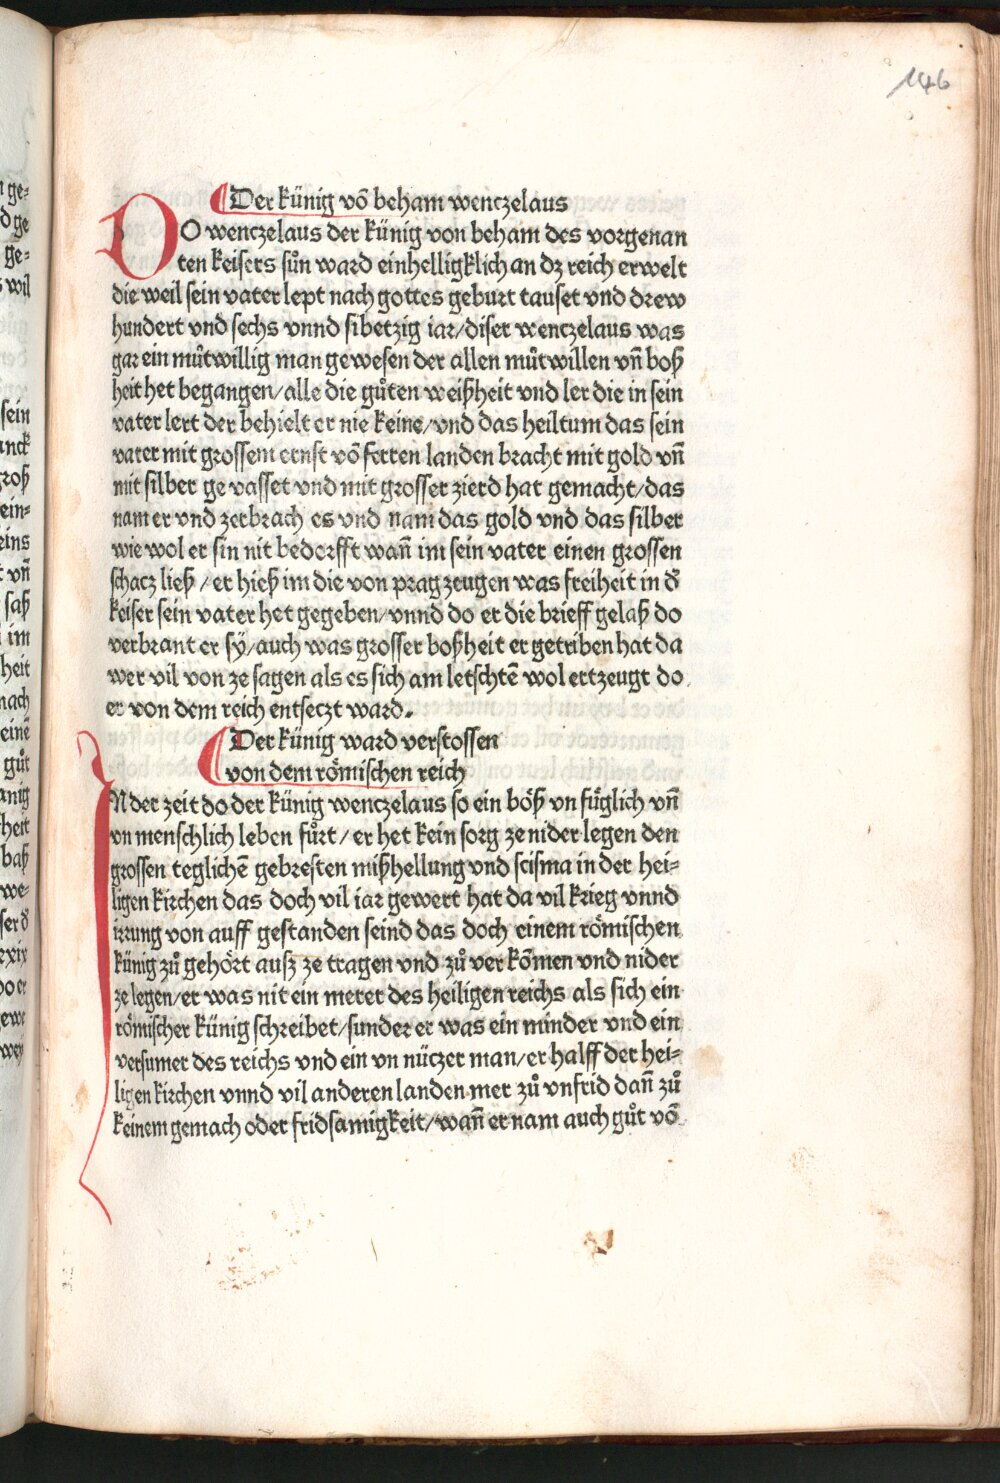 146
Der künig võ beham wenczelaus
DO wenczelaus der künig von beham des vorgenan
ten keisers sůn ward einhelligklich an dz reich erwelt
die weil sein vater lept nach gottes geburt tauset vnd drew
hundert vnd sechs vnnd sibetzig iar/diser wenczelaus was
gar ein můtwillig man gewesen der allen můtwillen vñ boß
heit het begangen/alle die gůten weißheit vnd ler die in sein
vater lert der behielt er nie keine/vnd das heiltum das sein
vater mit grossem ernst võ ferren landen bracht mit gold vñ
mit silber ge vasset vnd mit grosser zierd hat gemacht/das
nam er vnd zerbrach es vnd nam das gold vnd das silber
wie wol er sin nit bedorfft wañ im sein vater einen grossen
schacz ließ/er hieß im die von prag zeugen was freiheit in d̃
keiser sein vater het gegeben/vnnd do er die brieff gelaß do
verbrant er sÿ/auch was grosser boßheit er getriben hat da
wer vil von ze sagen als es sich am letschtẽ wol ertzeugt do
er von dem reich entseczt ward.
Der künig ward verstossen
von dem römischen reich
IN der zeit do der künig wenczelaus so ein böß vn fůglich vñ
vn menschlich leben fůrt/er het kein sorg ze nider legen den
grossen teglichẽ gebresten mißhellung vnd scisma in der hei=
ligen kirchen das doch vil iar gewert hat da vil krieg vnnd
irrung von auff gestanden seind das doch einem römischen
künig zů gehört ausz ze tragen vnd zů ver kõmen vnd nider
ze legen/er was nit ein merer des heiligen reichs als sich ein
römischer künig schreibet/sunder er was ein minder vnd ein
versumer des reichs vnd ein vn nüczer man/er halff der hei=
ligen kirchen vnnd vil anderen landen mer zů vnfrid dañ zů
keinem gemach oder fridsamigkeit/wañ er nam auch gůt võ